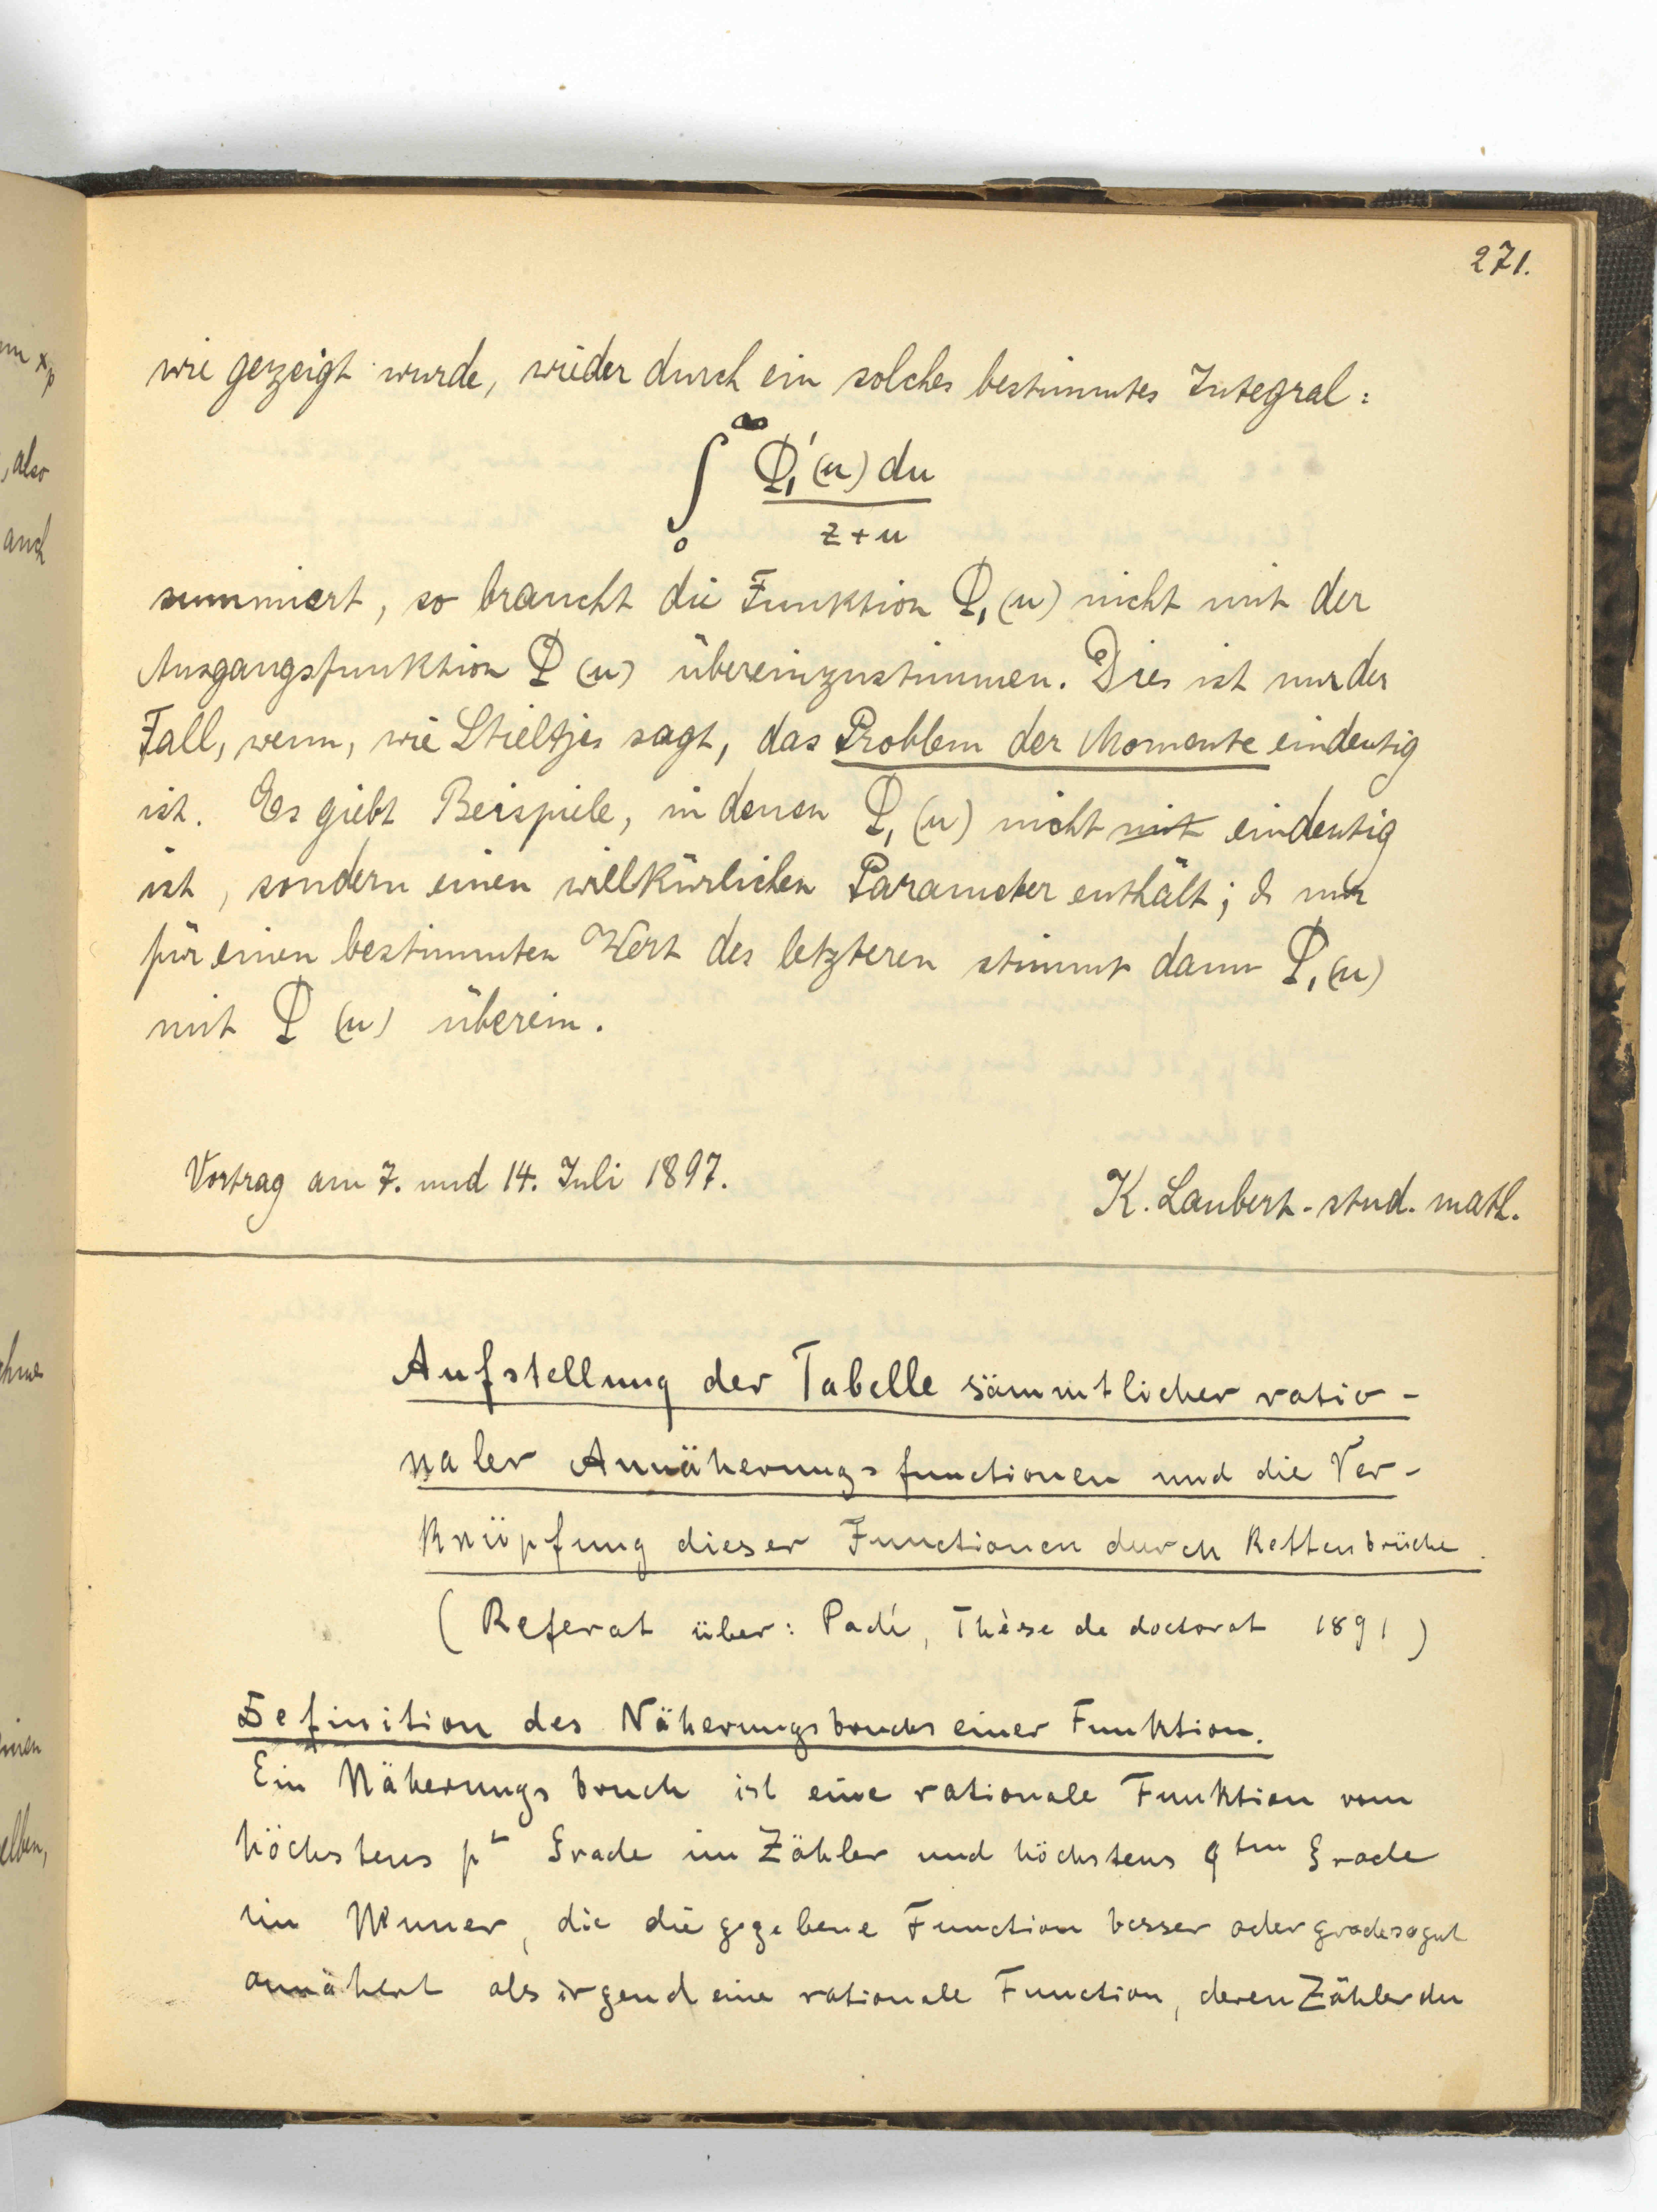 271.
wie gezeigt wurde, wieder durch ein solches bestimmtes Integral:
∫₀^∞ Φ₁'(u) du / z+u
summiert, so braucht die Funktion Φ₁(u) nicht mit der
Ausgangsfunktion Φ(u) übereinzustimmen. Dies ist nur der
Fall, wenn, wie Stieltjes sagt, das Problem der Momente eindeutig
ist. Es giebt Beispiele, in denen Φ₁(u) nicht mit eindeutig
ist, sondern einen willkürlichen Parameter enthält; & nur
für einen bestimmten Wert des letzteren stimmt dann Φ₁(u)
mit Φ(u) überein.
Vortrag am 7. und 14. Juli 1897.
K. Laubert. stud. math.
Aufstellung der Tabelle sämmtlicher ratio-
naler Annäherungsfunctionen und die Ver-
knüpfung dieser Functionen durch Kettenbrüche.
(Referat über: Padé, Thèse de doctorat 1891)
Definition des Näherungsbruchs einer Funktion.
Ein Näherungsbruch ist eine rationale Funktion vom
höchstens p Grade im Zähler und höchstens qten Grade
im Nenner, die die gegebene Function besser oder gradesogut
annähert als irgend eine rationale Function, deren Zähler den
xp
, also
auch